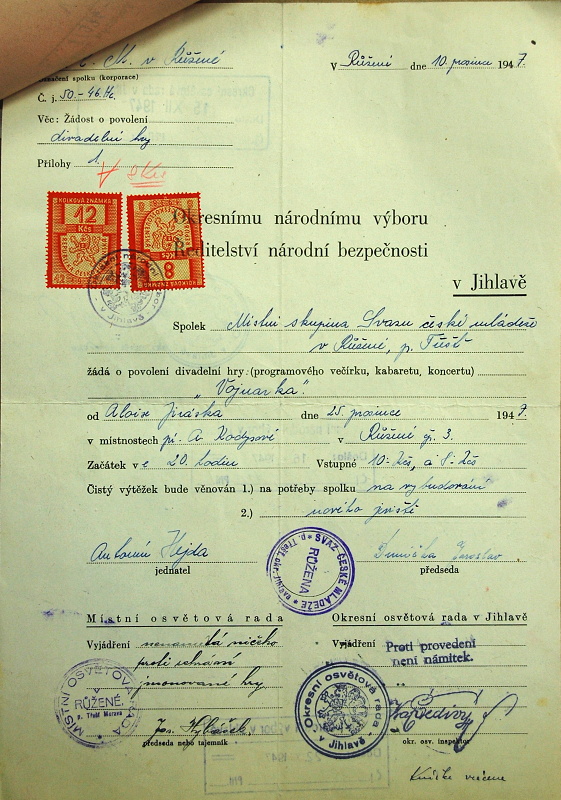 Č. M. v Růžené
V Růžené dne 10. prosince 1947
označení spolku (korporace)
Č. j. 50.-46.
Věc: Žádost o povolení
divadelní hry
Přílohy 1.
8 Kčs
KOLKOVÁ ZNÁMKA
12
Kčs
KOLKOVÁ ZNÁMKA
8
Kčs
Okresnímu národnímu výboru
Ředitelství národní bezpečnosti
v Jihlavě
Spolek Místní skupina Svazu české mládeže
v Růžené, p. Třešť
žádá o povolení divadelní hry (programového večírku, kabaretu, koncertu)
„Vojnarka“.
od Aloise Jiráska dne 25. prosince 1947
v místnostech pí. A. v Růžené čp. 3.
Začátek v e 20. hodin Vstupné 10·Kčs, a 8·Kčs
Čistý výtěžek bude věnován 1.) na potřeby spolku na vybudování
2.) nového jeviště
Antonín Hejda
Jaroslav
jednatel předseda
SVAZ ČESKÉ MLÁDEŽE
RŮŽENÁ
Místní osvětová rada
Okresní osvětová rada v Jihlavě
Vyjádření nenamítá ničeho
proti sehrání
jmenované hry
Vyjádření Proti provedení
není námitek.
MÍSTNÍ OSVĚTOVÁ RADA
V
RŮŽENÉ.
p. Třešť Morava
Okresní osvětová rada
v Jihlavě
Jos.
předseda nebo tajemník
okr. osv. inspektor